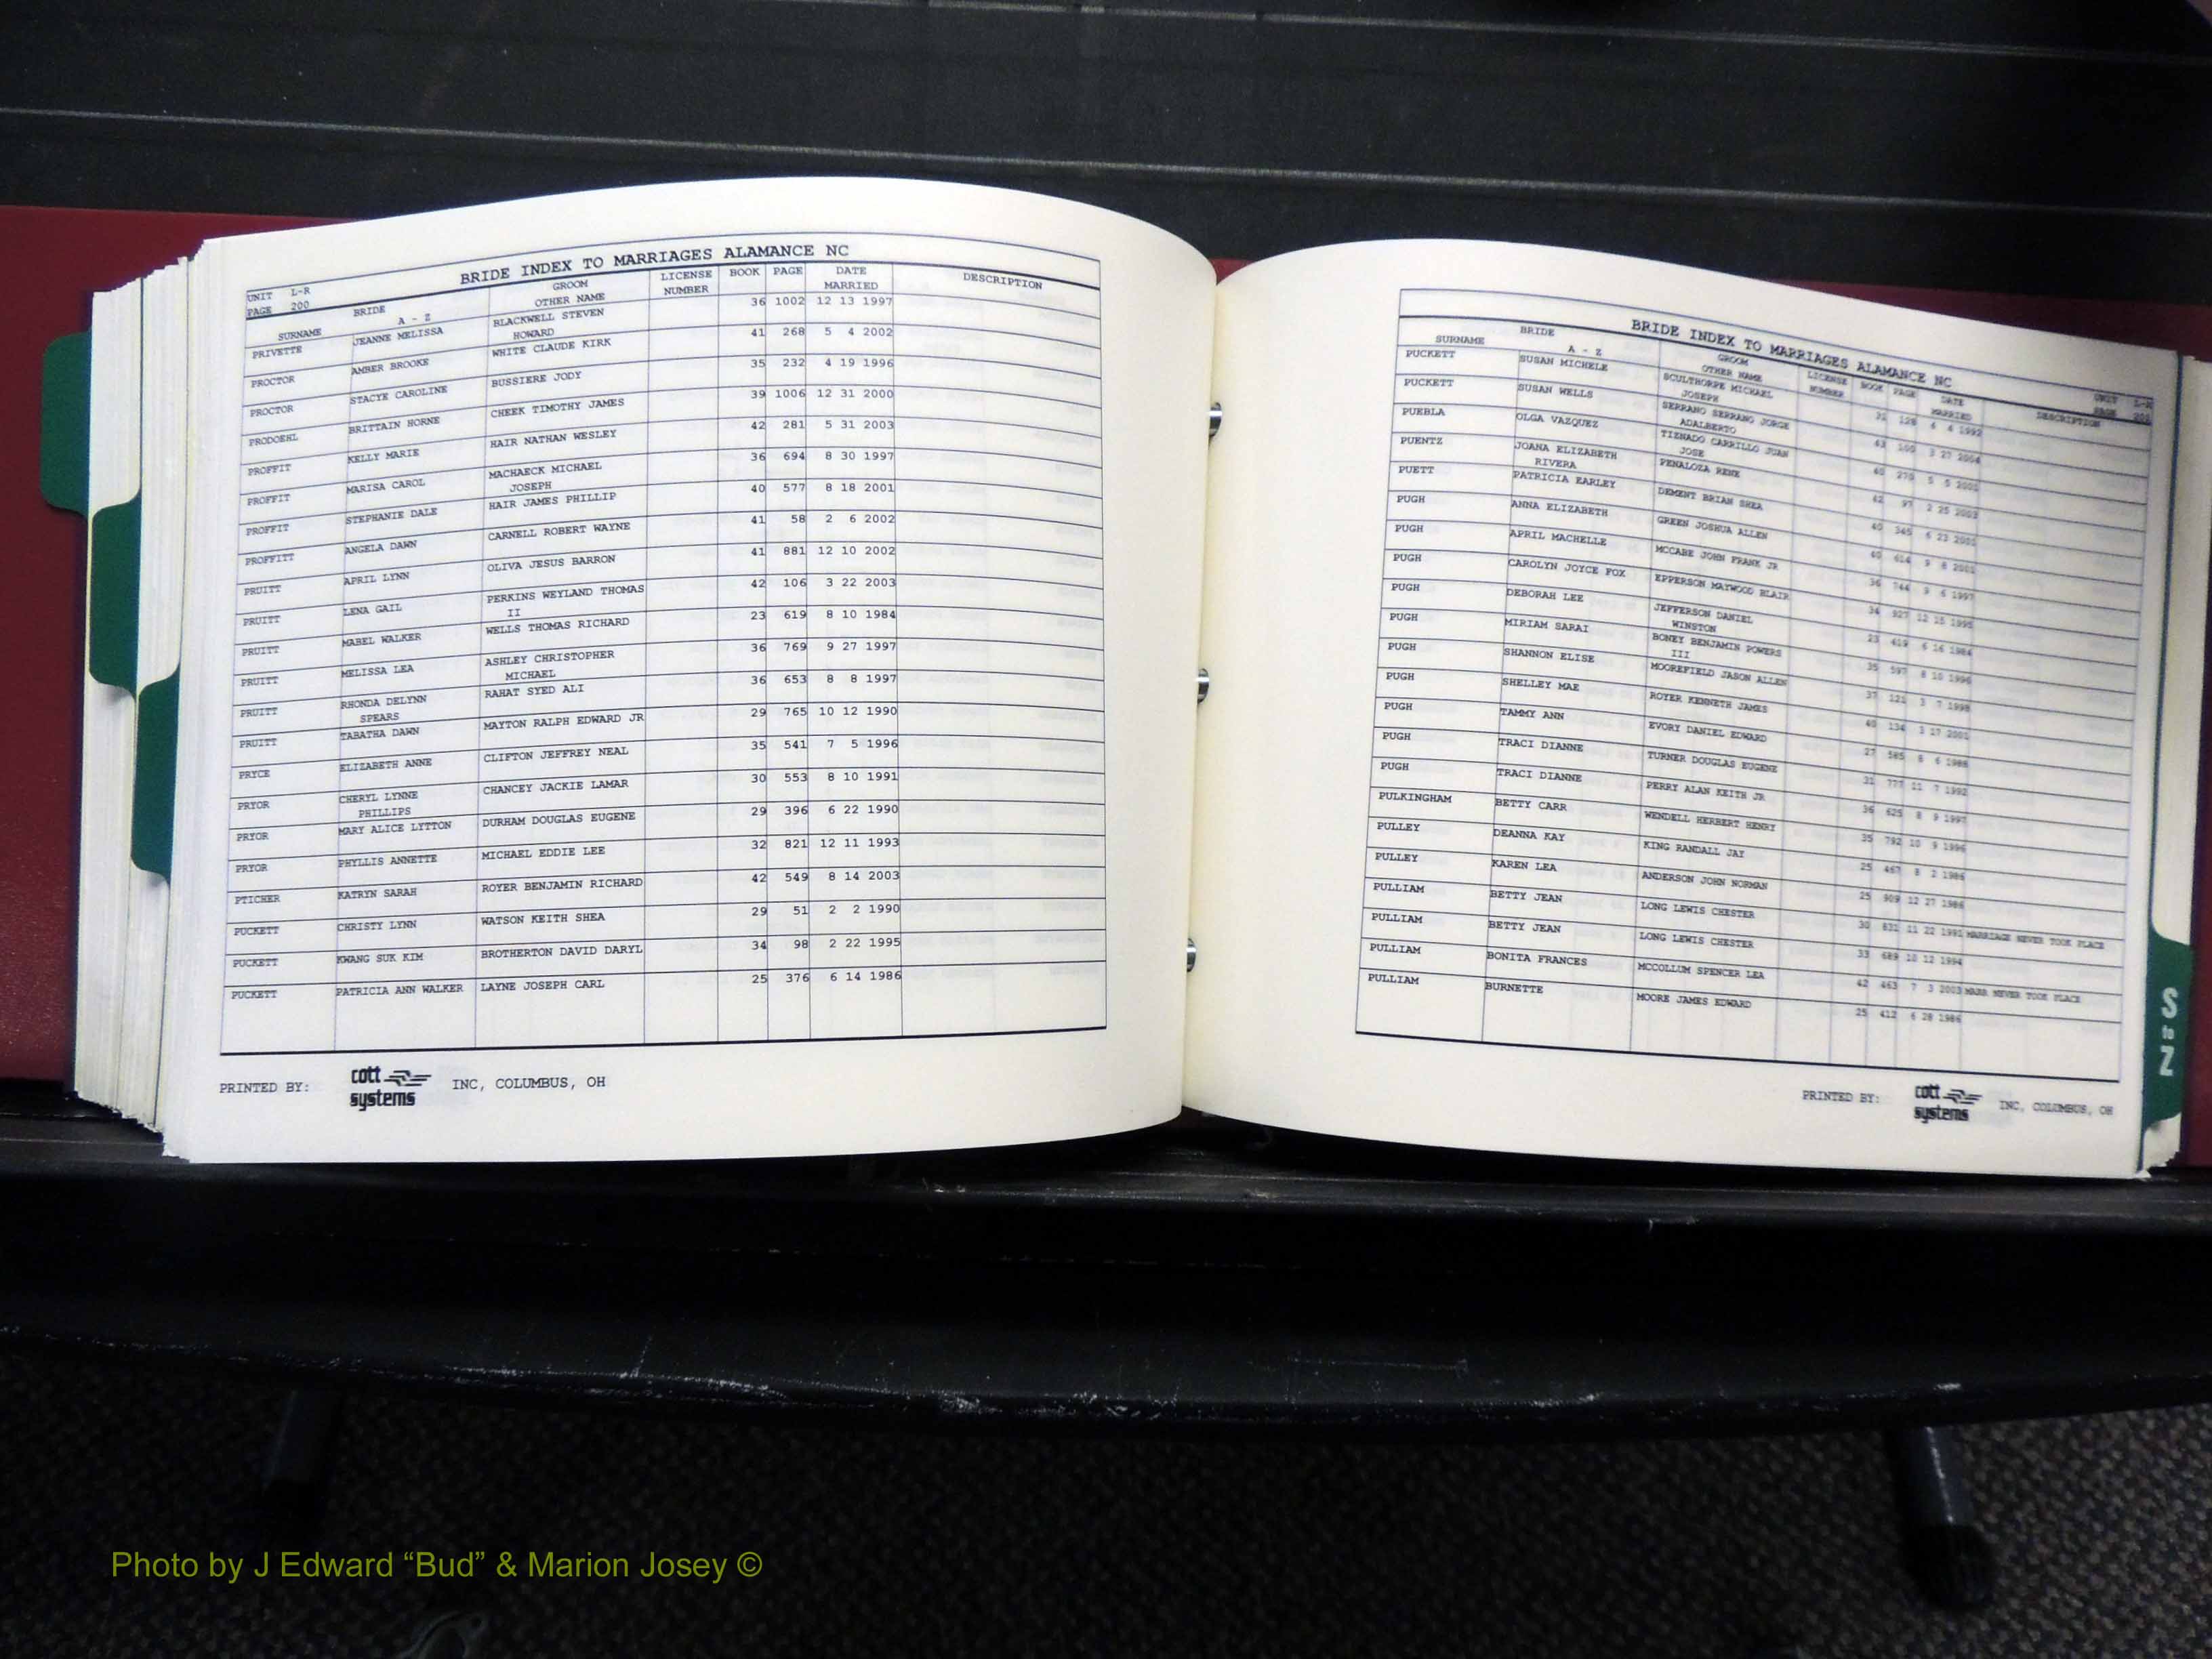 BRIDE INDEX TO MARRIAGES ALAMANCE NC
UNIT L-R
PAGE 200
SURNAME BRIDE A - Z GROOM OTHER NAME LICENSE NUMBER BOOK PAGE DATE MARRIED DESCRIPTION
PRIVETTE JEANNE MELISSA BLACKWELL STEVEN HOWARD 36 1002 12 13 1997
PROCTOR AMBER BROOKE WHITE CLAUDE KIRK 41 268 5 4 2002
PROCTOR STACYE CAROLINE BUSSIERE JODY 35 232 4 19 1996
PRODOEHL BRITTAIN HORNE CHEEK TIMOTHY JAMES 39 1006 12 31 2000
PROFFIT KELLY MARIE HAIR NATHAN WESLEY 42 281 5 31 2003
PROFFIT MARISA CAROL MACHAECK MICHAEL JOSEPH 36 694 8 30 1997
PROFFIT STEPHANIE DALE HAIR JAMES PHILLIP 40 577 8 18 2001
PROFFITT ANGELA DAWN CARNELL ROBERT WAYNE 41 58 2 6 2002
PRUITT APRIL LYNN OLIVA JESUS BARRON 41 881 12 10 2002
PRUITT LENA GAIL PERKINS WEYLAND THOMAS II 42 106 3 22 2003
PRUITT MABEL WALKER WELLS THOMAS RICHARD 23 619 8 10 1984
PRUITT MELISSA LEA ASHLEY CHRISTOPHER MICHAEL 36 769 9 27 1997
PRUITT RHONDA DELYNN SPEARS RAHAT SYED ALI 36 653 8 8 1997
PRUITT TABATHA DAWN MAYTON RALPH EDWARD JR 29 765 10 12 1990
PRYCE ELIZABETH ANNE CLIFTON JEFFREY NEAL 35 541 7 5 1996
PRYOR CHERYL LYNNE PHILLIPS CHANCEY JACKIE LAMAR 30 553 8 10 1991
PRYOR MARY ALICE LYTTON DURHAM DOUGLAS EUGENE 29 396 6 22 1990
PRYOR PHYLLIS ANNETTE MICHAEL EDDIE LEE 32 821 12 11 1993
PTICHER KATRYN SARAH ROYER BENJAMIN RICHARD 42 549 8 14 2003
PUCKETT CHRISTY LYNN WATSON KEITH SHEA 29 51 2 2 1990
PUCKETT KWANG SUK KIM BROTHERTON DAVID DARYL 34 98 2 22 1995
PUCKETT PATRICIA ANN WALKER LAYNE JOSEPH CARL 25 376 6 14 1986
PRINTED BY: cott systems INC, COLUMBUS, OH
BRIDE INDEX TO MARRIAGES ALAMANCE NC
UNIT L-R
PAGE 201
SURNAME BRIDE A - Z GROOM OTHER NAME LICENSE NUMBER BOOK PAGE DATE MARRIED DESCRIPTION
PUCKETT SUSAN MICHELE SCULTHORPE MICHAEL JOSEPH 31 128 4 4 1992
PUCKETT SUSAN WELLS SERRANO SERRANO JORGE ADALBERTO 43 100 3 27 2004
PUEBLA OLGA VAZQUEZ TIZNADO CARRILLO JUAN JOSE 40 270 5 5 2001
PUENTZ JOANA ELIZABETH RIVERA PENALOZA RENE 42 97 2 25 2003
PUETT PATRICIA EARLEY DEMENT BRIAN SHEA 40 345 6 23 2001
PUGH ANNA ELIZABETH GREEN JOSHUA ALLEN 40 614 9 8 2001
PUGH APRIL MACHELLE MCCABE JOHN FRANK JR 36 744 9 6 1997
PUGH CAROLYN JOYCE FOX EPPERSON MAYWOOD BLAIR 34 927 12 15 1995
PUGH DEBORAH LEE JEFFERSON DANIEL WINSTON 23 419 6 16 1984
PUGH MIRIAM SARAI BONEY BENJAMIN POWERS III 35 597 8 10 1996
PUGH SHANNON ELISE MOOREFIELD JASON ALLEN 37 121 3 7 1998
PUGH SHELLEY MAE ROYER KENNETH JAMES 40 134 3 17 2001
PUGH TAMMY ANN EVORY DANIEL EDWARD 27 585 8 6 1988
PUGH TRACI DIANNE TURNER DOUGLAS EUGENE 31 777 11 7 1992
PUGH TRACI DIANNE PERRY ALAN KEITH JR 36 625 8 9 1997
PULKINGHAM BETTY CARR WENDELL HERBERT HENRY 35 792 10 9 1996
PULLEY DEANNA KAY KING RANDALL JAY 25 467 8 2 1986
PULLEY KAREN LEA ANDERSON JOHN NORMAN 25 909 12 27 1986
PULLIAM BETTY JEAN LONG LEWIS CHESTER 30 831 11 22 1991 MARRIAGE NEVER TOOK PLACE
PULLIAM BETTY JEAN LONG LEWIS CHESTER 33 689 10 12 1994
PULLIAM BONITA FRANCES MCCOLLUM SPENCER LEA 42 463 7 3 2003 MARR NEVER TOOK PLACE
PULLIAM BURNETTE MOORE JAMES EDWARD 25 412 6 28 1986
PRINTED BY: cott systems INC, COLUMBUS, OH
S to Z
Photo by J Edward “Bud” & Marion Josey ©